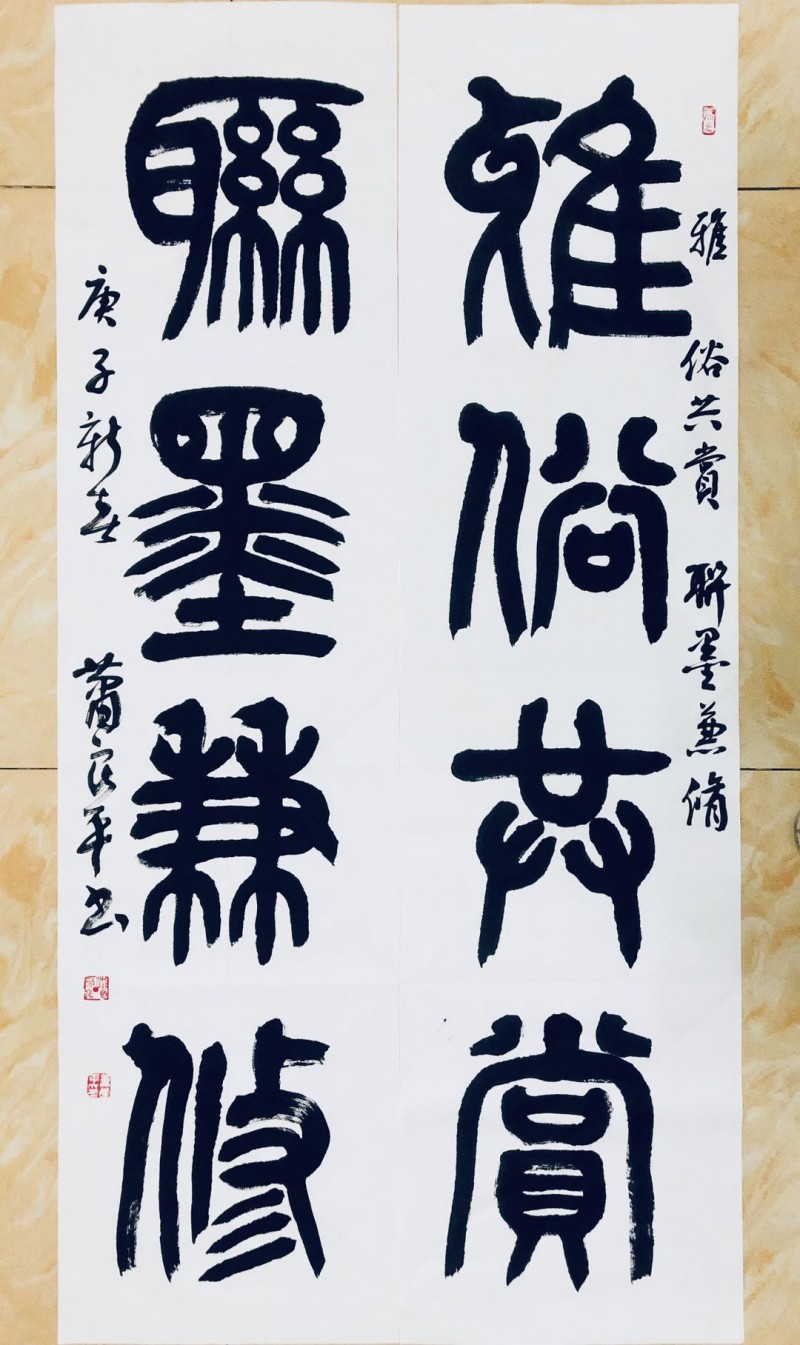 雅俗共賞
聯墨兼修
雅俗共賞 聯墨兼脩
庚子新春 蕭良平書